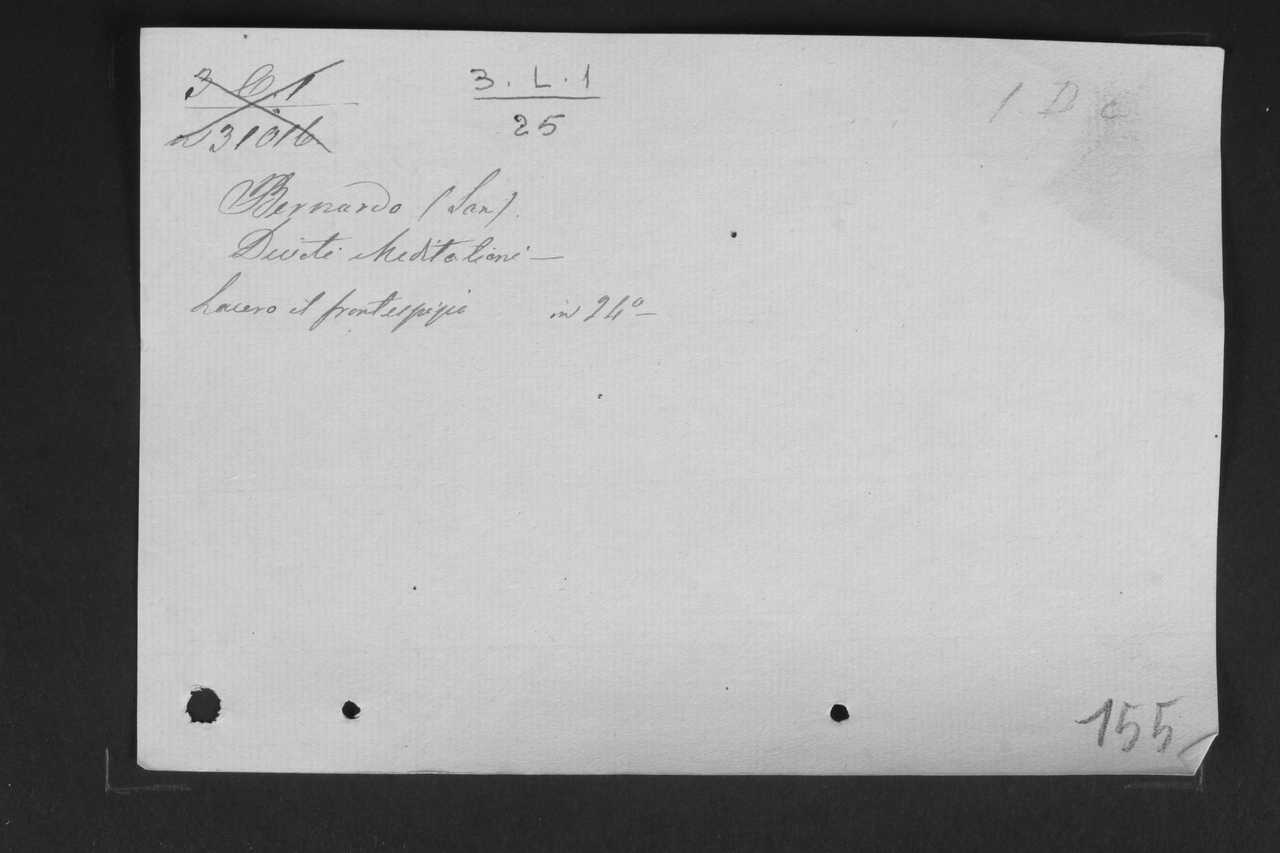 3. L. 1
25
1 D c
Bernardo (San).
Divote Meditationi —
Lacero il frontespizio in 24º —
155